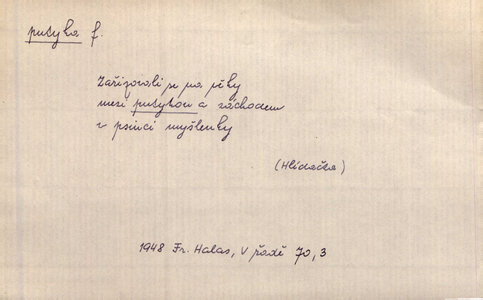 putyka f.
Zařizovali se na věky
mezi putykou a záchodem
v psinci myšlenky
(Hlídačka)
1948 Fr. Halas, V řadě 70, 3